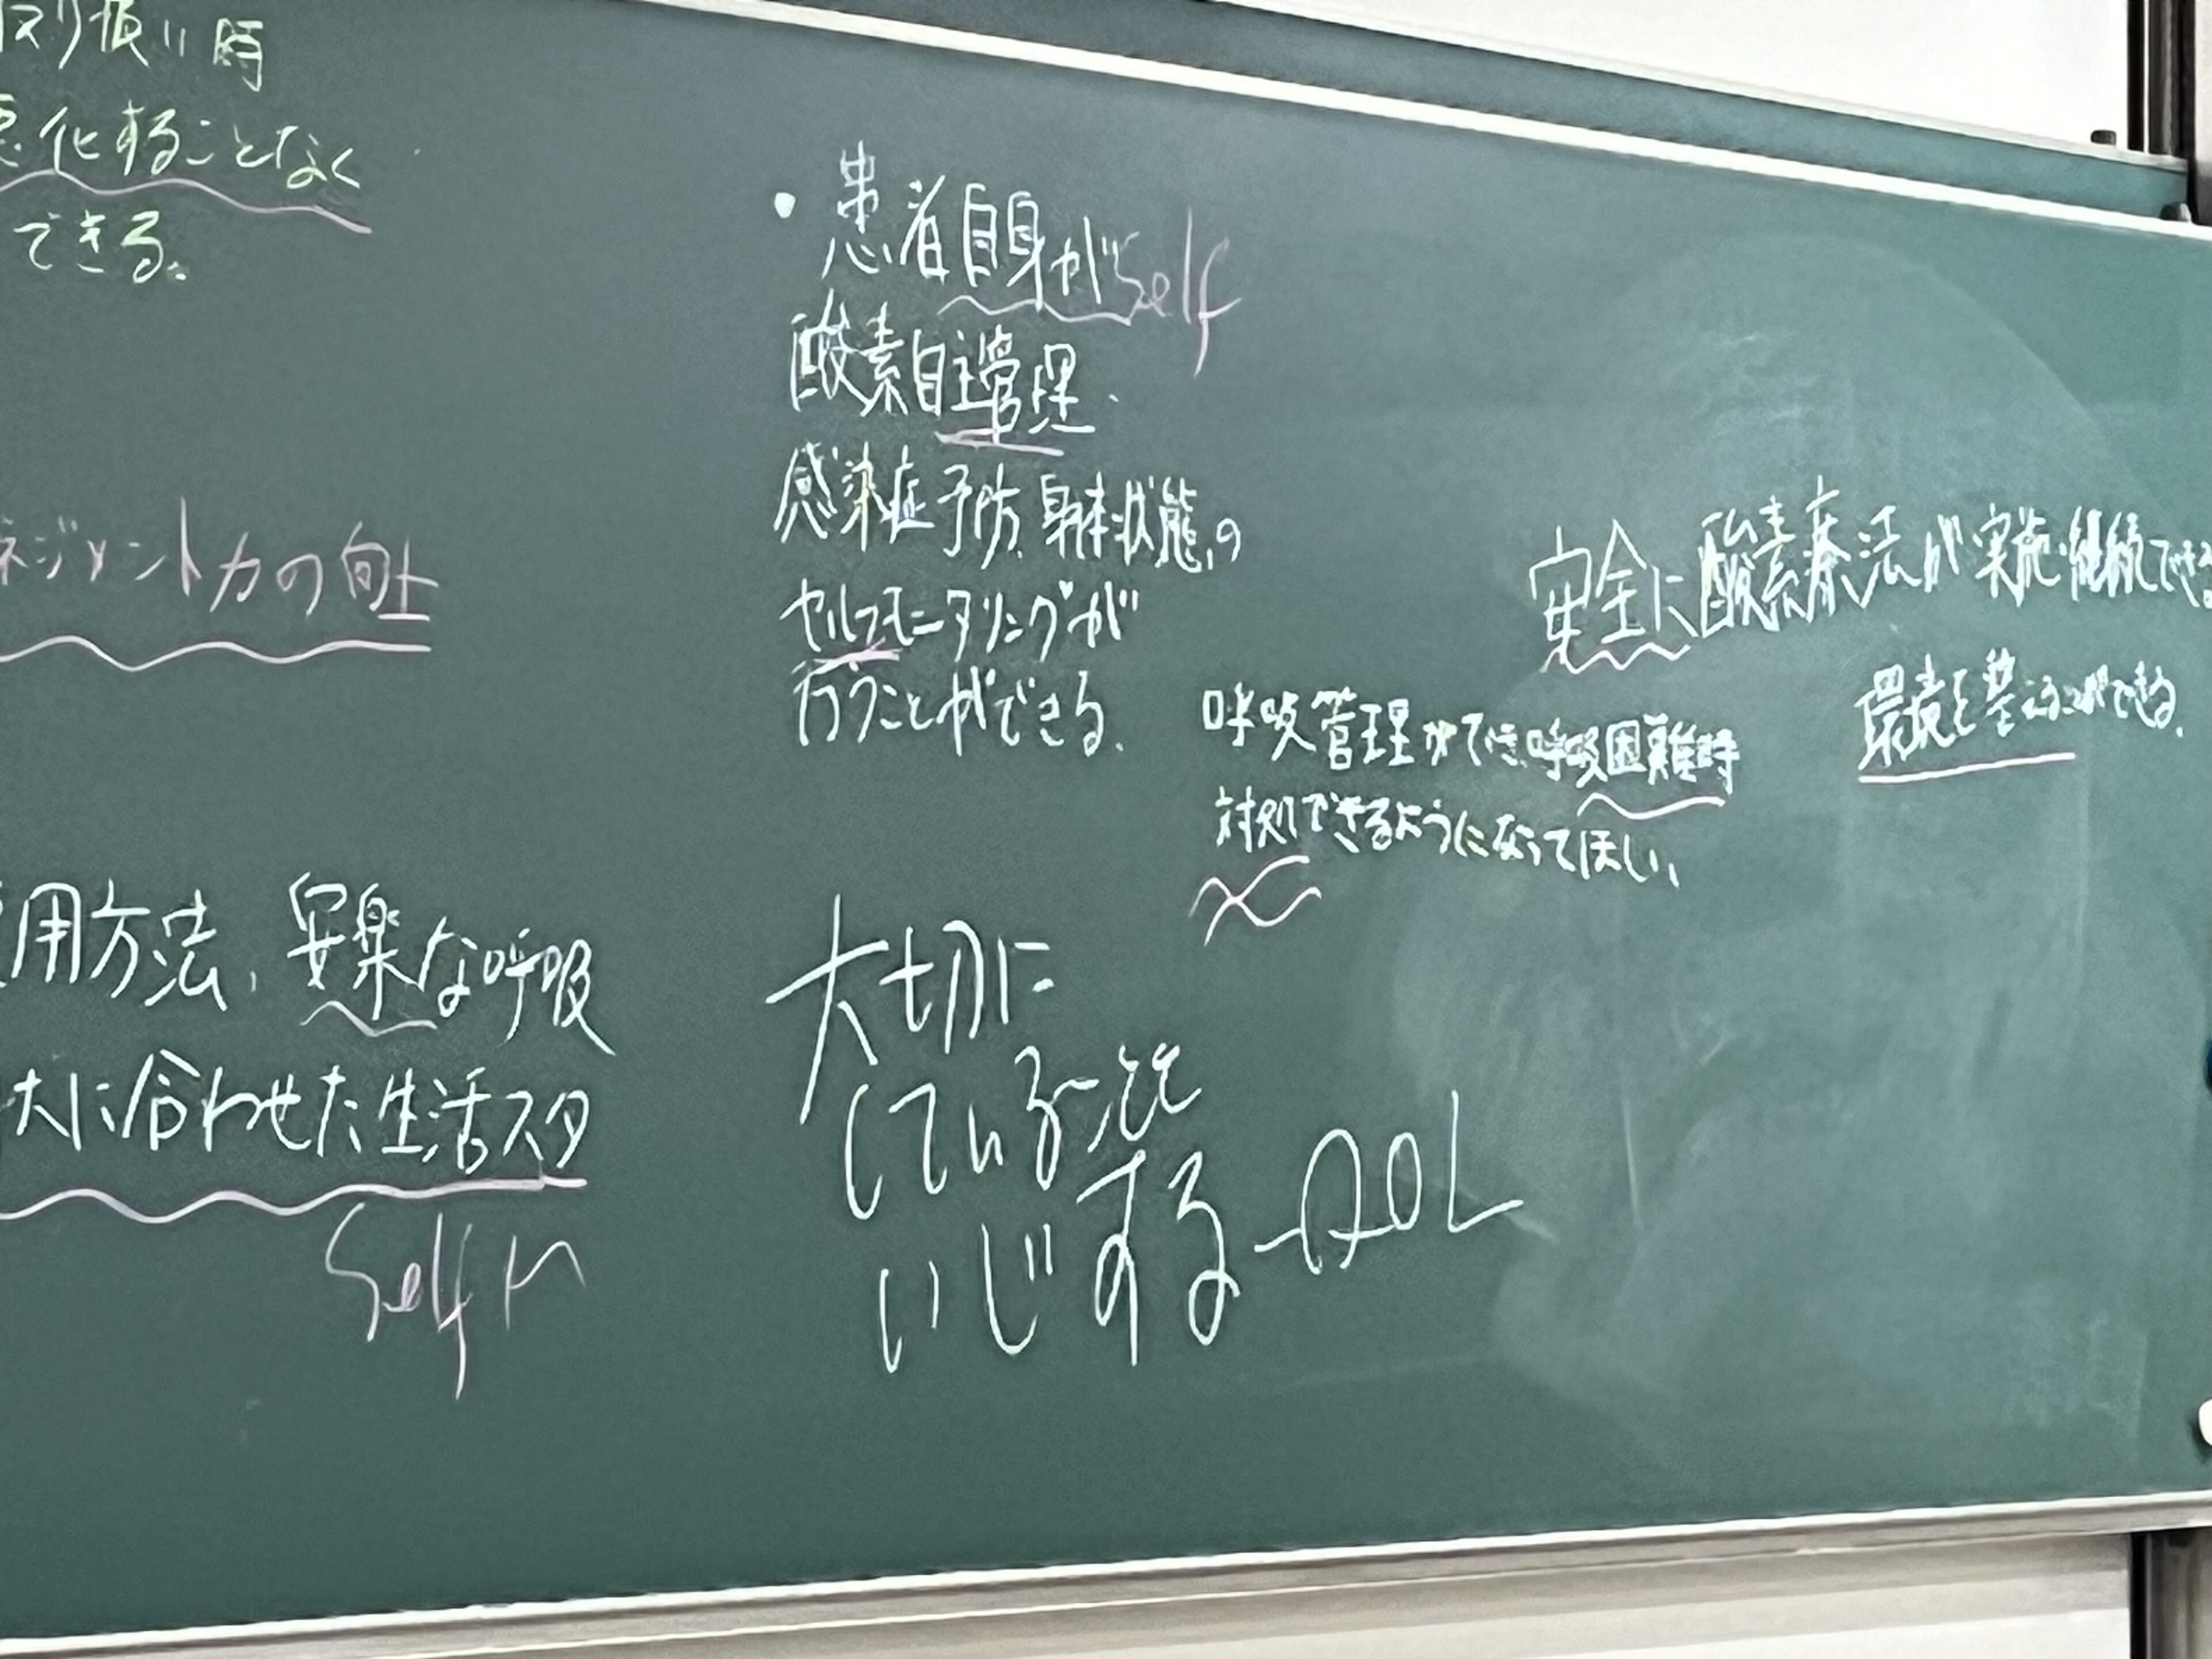 取り扱い時
悪化することなく
できる。
ネジメント力の向上
用方法、安楽な呼吸
に合わせた生活スタ
Self M
・患者自身が Self
酸素自主管理、
感染症予防、身体状態の
セルフモニタリングが
行うことができる。
呼吸管理ができ、呼吸困難時
対処できるようになってほしい、
大切に
していることを
いじする-QOL
安全に酸素療法が実施・継続できる
環境を整えることができる。